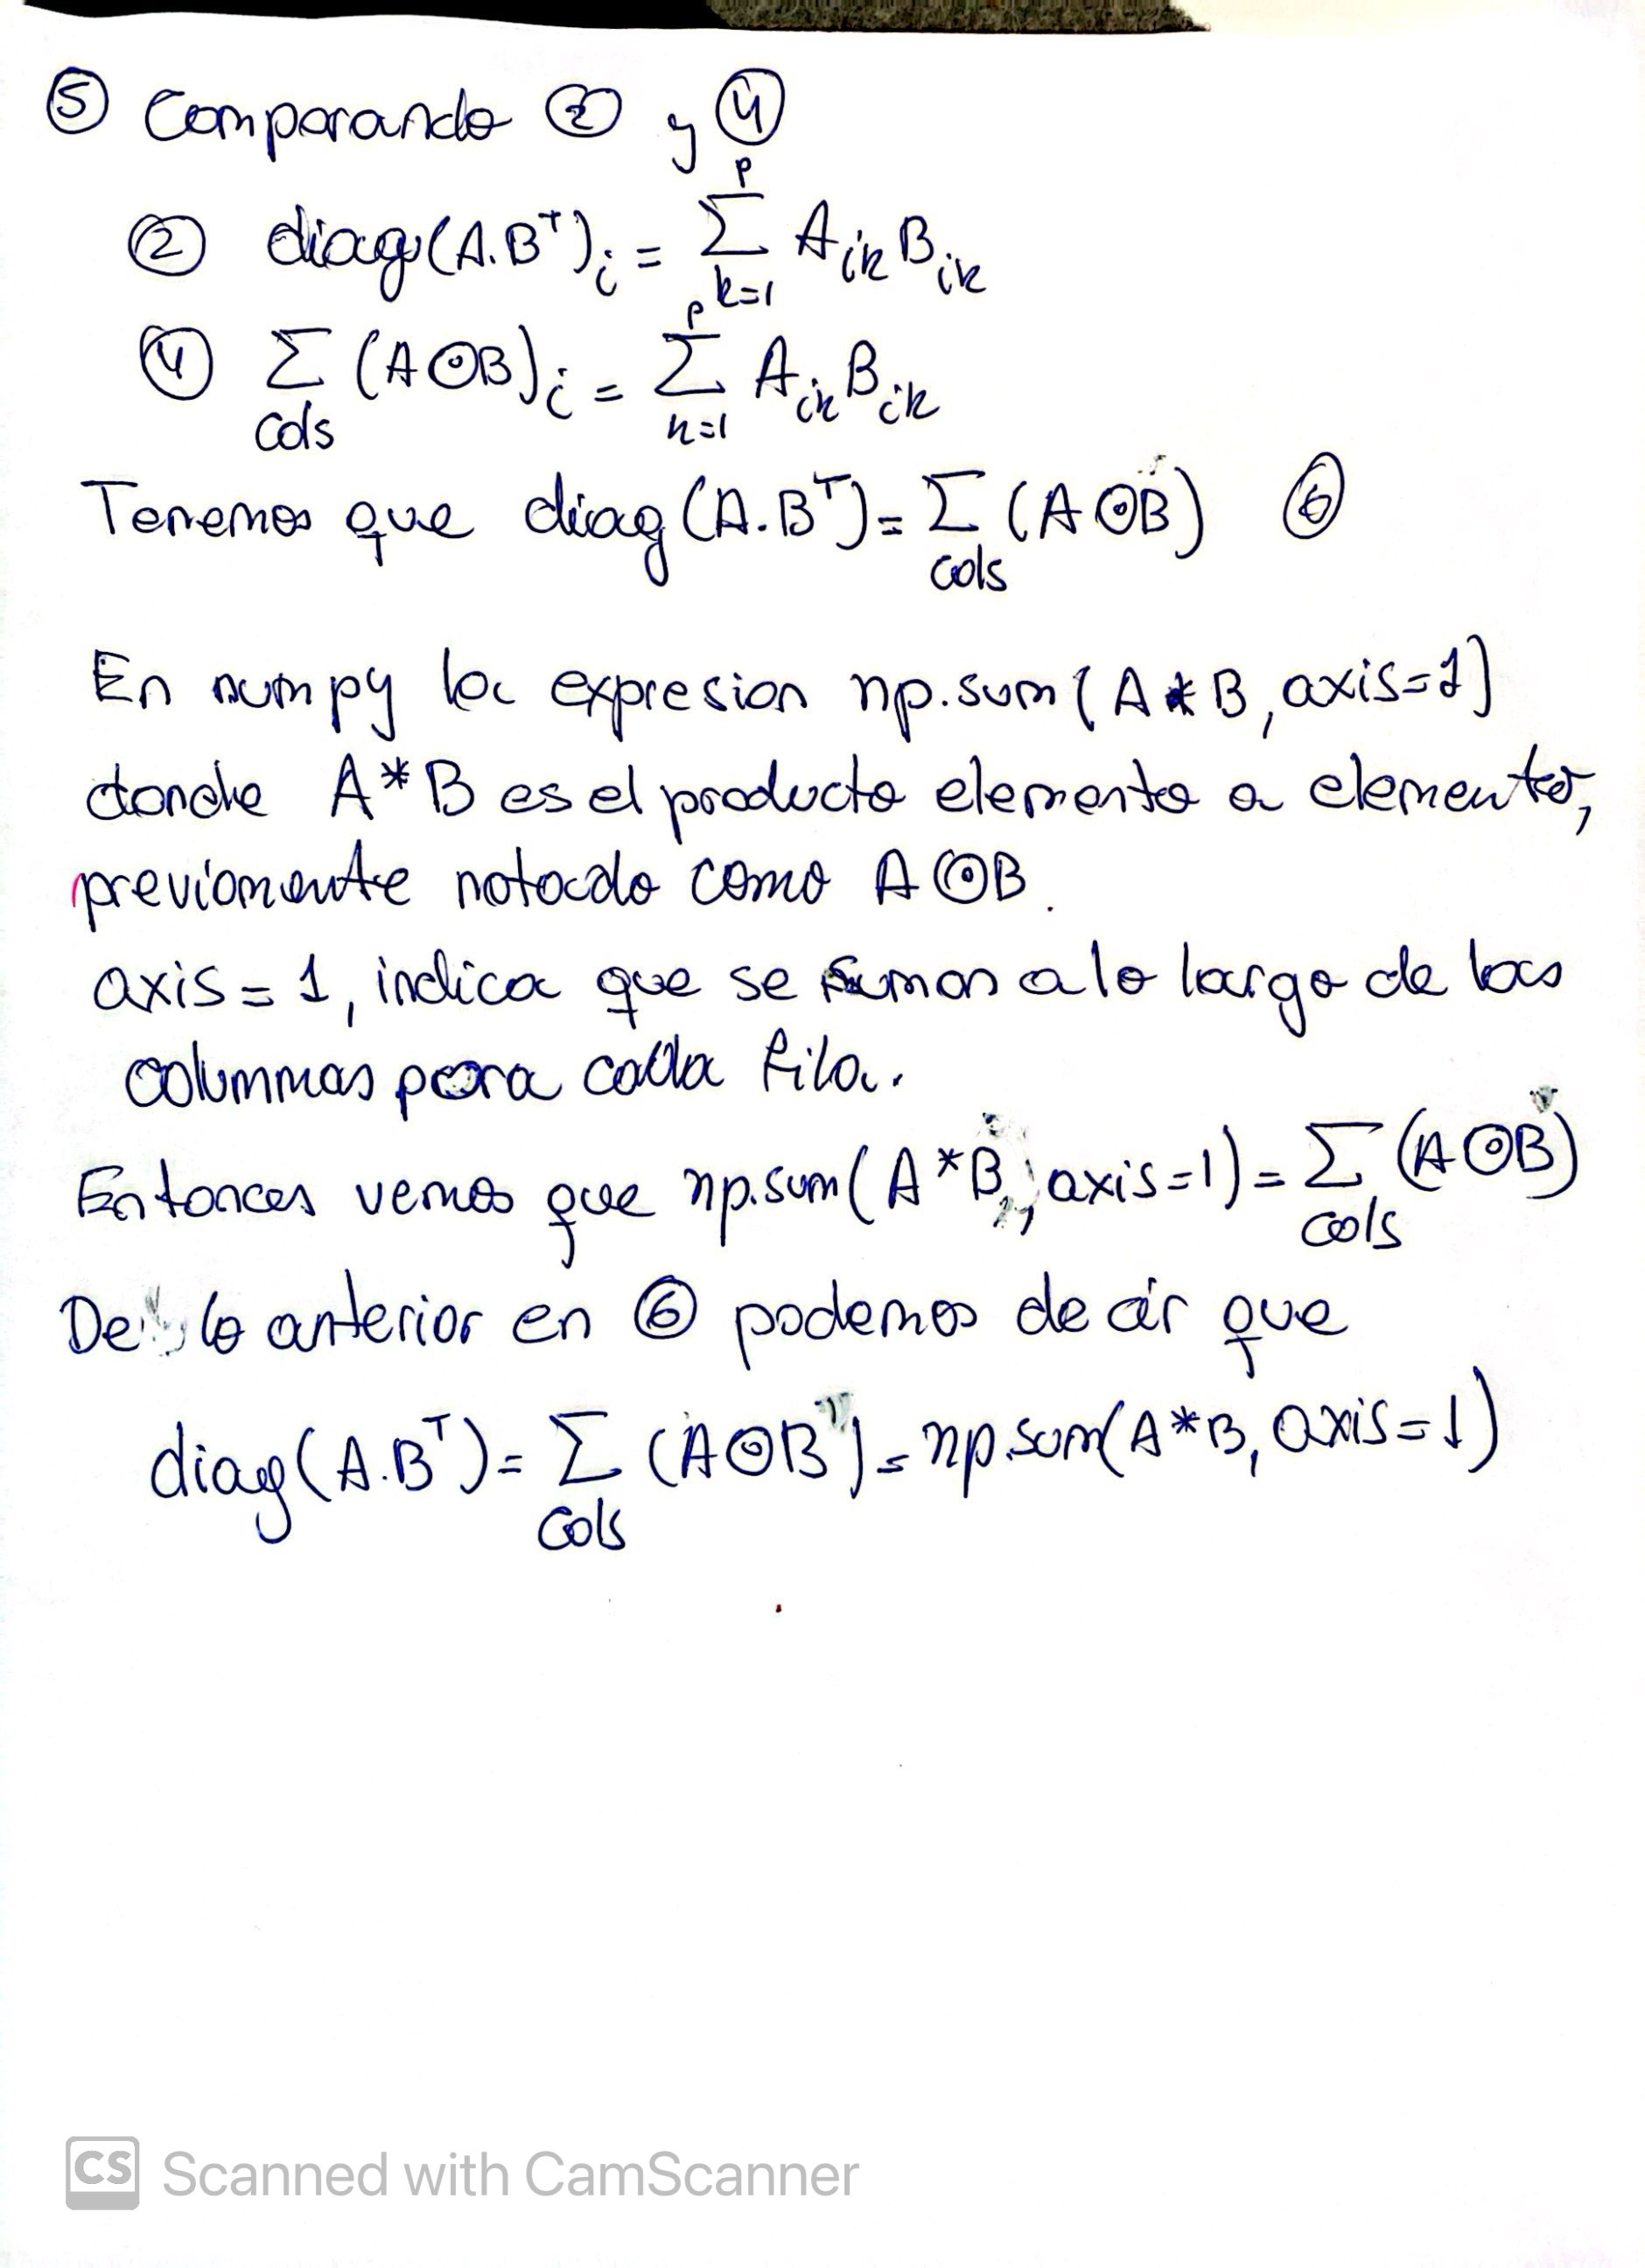 ⑤ Comparando ② y ④
② diag(A.Bᵀ)ᵢ = Σₖ₌₁ᵖ Aᵢₖ Bᵢₖ
④ Σ_cols (A⊙B)ᵢ = Σₖ₌₁ᵖ Aᵢₖ Bᵢₖ
Tenemos que diag(A.Bᵀ) = Σ_cols (A⊙B) ⑥
En numpy la expresion np.sum(A*B, axis=1)
donde A*B es el producto elemento a elemento,
previamente notado como A⊙B.
axis=1, indica que se suman a lo largo de las
columnas para cada fila.
Entonces vemos que np.sum(A*B, axis=1) = Σ_cols (A⊙B)
De lo anterior en ⑥ podemos decir que
diag(A.Bᵀ) = Σ_cols (A⊙B) = np.sum(A*B, axis=1)
CS Scanned with CamScanner